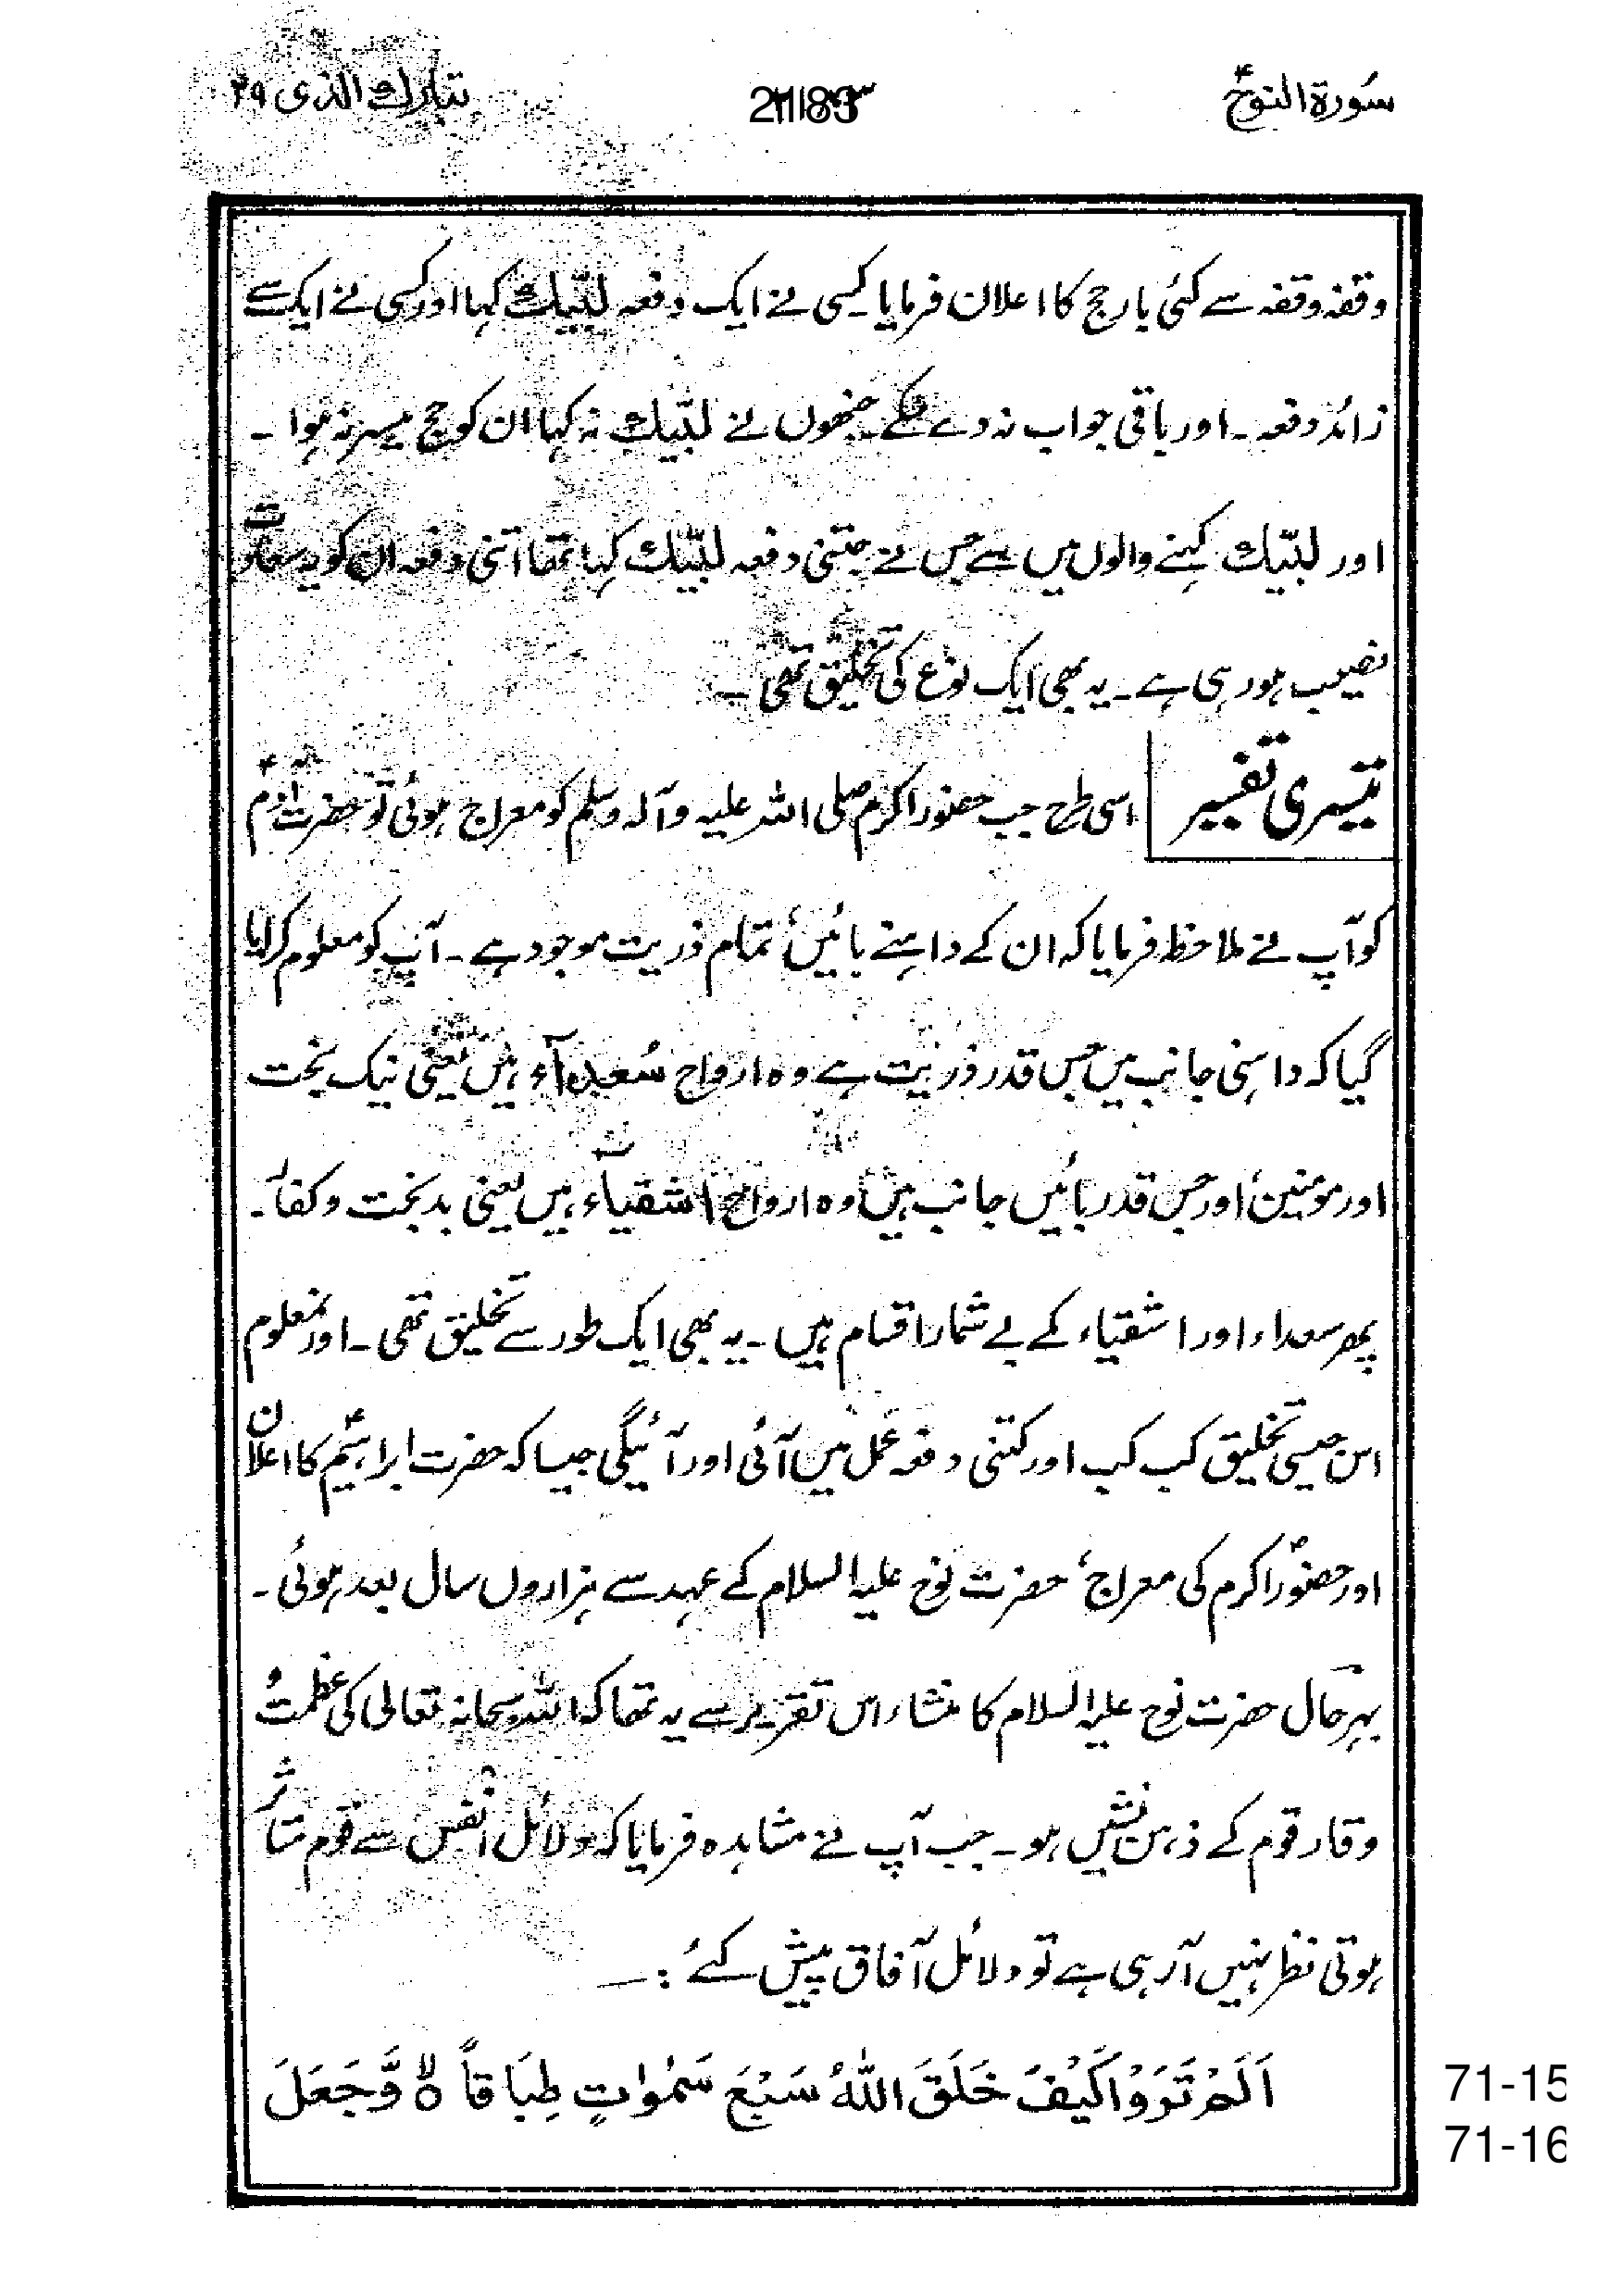 سُورة النوحؑ
تبارك الذی ۲۹
وقفہ وقفہ سے کئی بار حج کا اعلان فرمایا کسی نے ایک دفعہ لبّیك کہا اور کسی نے ایک سے
زائد دفعہ ۔ اور باقی جواب نہ دے سکے۔ جنھوں نے لبّیك نہ کہا ان کو حج میسر نہ ہوا ۔
اور لبّیك کہنے والوں میں سے جس نے جتنی دفعہ لبّیك کہا تھا اتنی دفعہ ان کو یہ سعادت
نصیب ہو رہی ہے ۔ یہ بھی ایک نوع کی تخلیق تھی ۔
تیسری تفسیر
اسی طرح جب حضور اکرم صلی اللہ علیہ وآلہ وسلم کو معراج ہوئی تو حضرت آدمؑ
کو آپ نے ملاحظہ فرمایا کہ ان کے داہنے بائیں تمام ذریت موجود ہے ۔ آپ کو معلوم کرایا
گیا کہ داہنی جانب میں جس قدر ذریت ہے وہ ارواح سُعداء ہیں یعنی نیک بخت
اور مومنین، اور جس قدر بائیں جانب ہیں وہ ارواح اشقیاء ہیں یعنی بدبخت و کفار۔
پھر سعداء اور اشقیاء کے بے شمار اقسام ہیں ۔ یہ بھی ایک طور سے تخلیق تھی ۔ اور نمعلوم
اس جیسی تخلیق کب کب اور کتنی دفعہ عمل میں آئی اور آئیگی جیسا کہ حضرت ابراہیمؑ کا اعلان
اور حضورؐ اکرم کی معراج، حضرت نوح علیہ السلام کے عہد سے ہزاروں سال بعد ہوئی ۔
بہرحال حضرت نوح علیہ السلام کا منشاء اس تقریر سے یہ تھا کہ اللہ سبحانہ تعالی کی عظمت و
وقار قوم کے ذہن نشیں ہو ۔ جب آپ نے مشاہدہ فرمایا کہ دلائل انفس سے قوم متاثر
ہوتی نظر نہیں آرہی ہے تو دلائل آفاق پیش کئے :۔
اَلَمْ تَرَوْا كَیْفَ خَلَقَ اللّٰهُ سَبْعَ سَمٰوٰتٍ طِبَاقاً ۙ وَّجَعَلَ
71-15
71-16